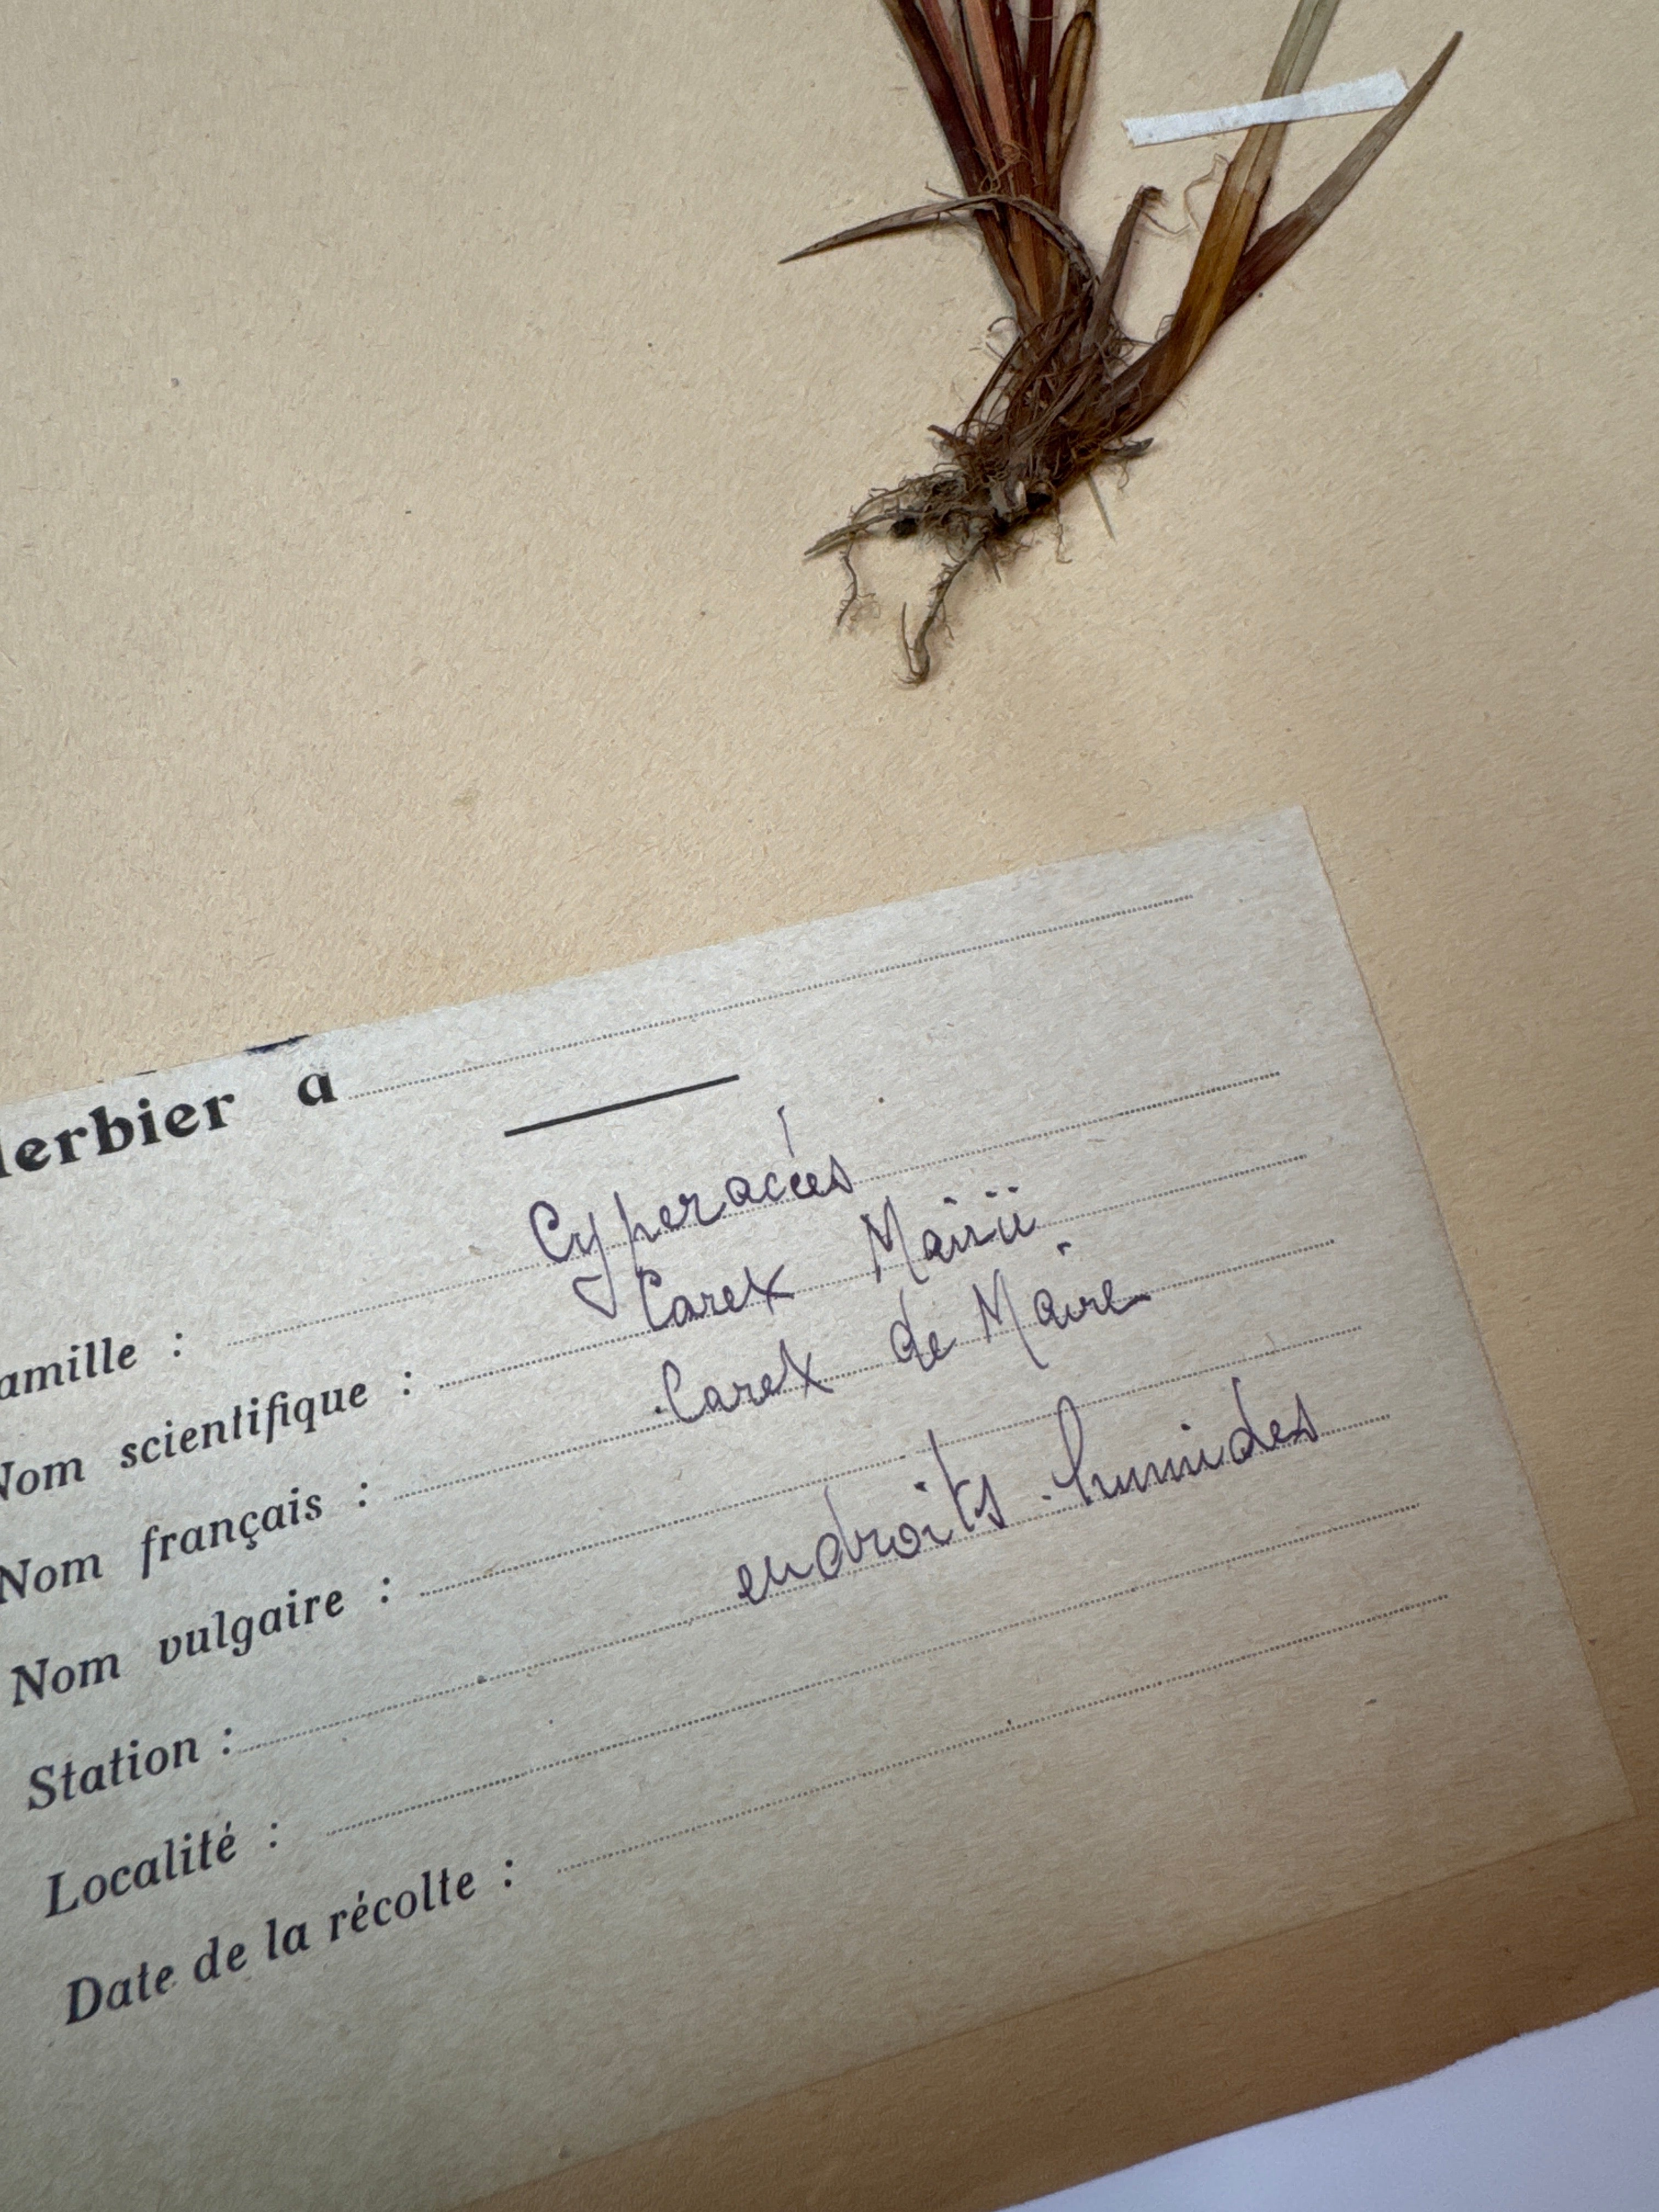 Herbier a
Famille : Cyperacées
Nom scientifique : Carex Mairii
Nom français : Carex de Maire
Nom vulgaire :
Station : endroits humides
Localité :
Date de la récolte :